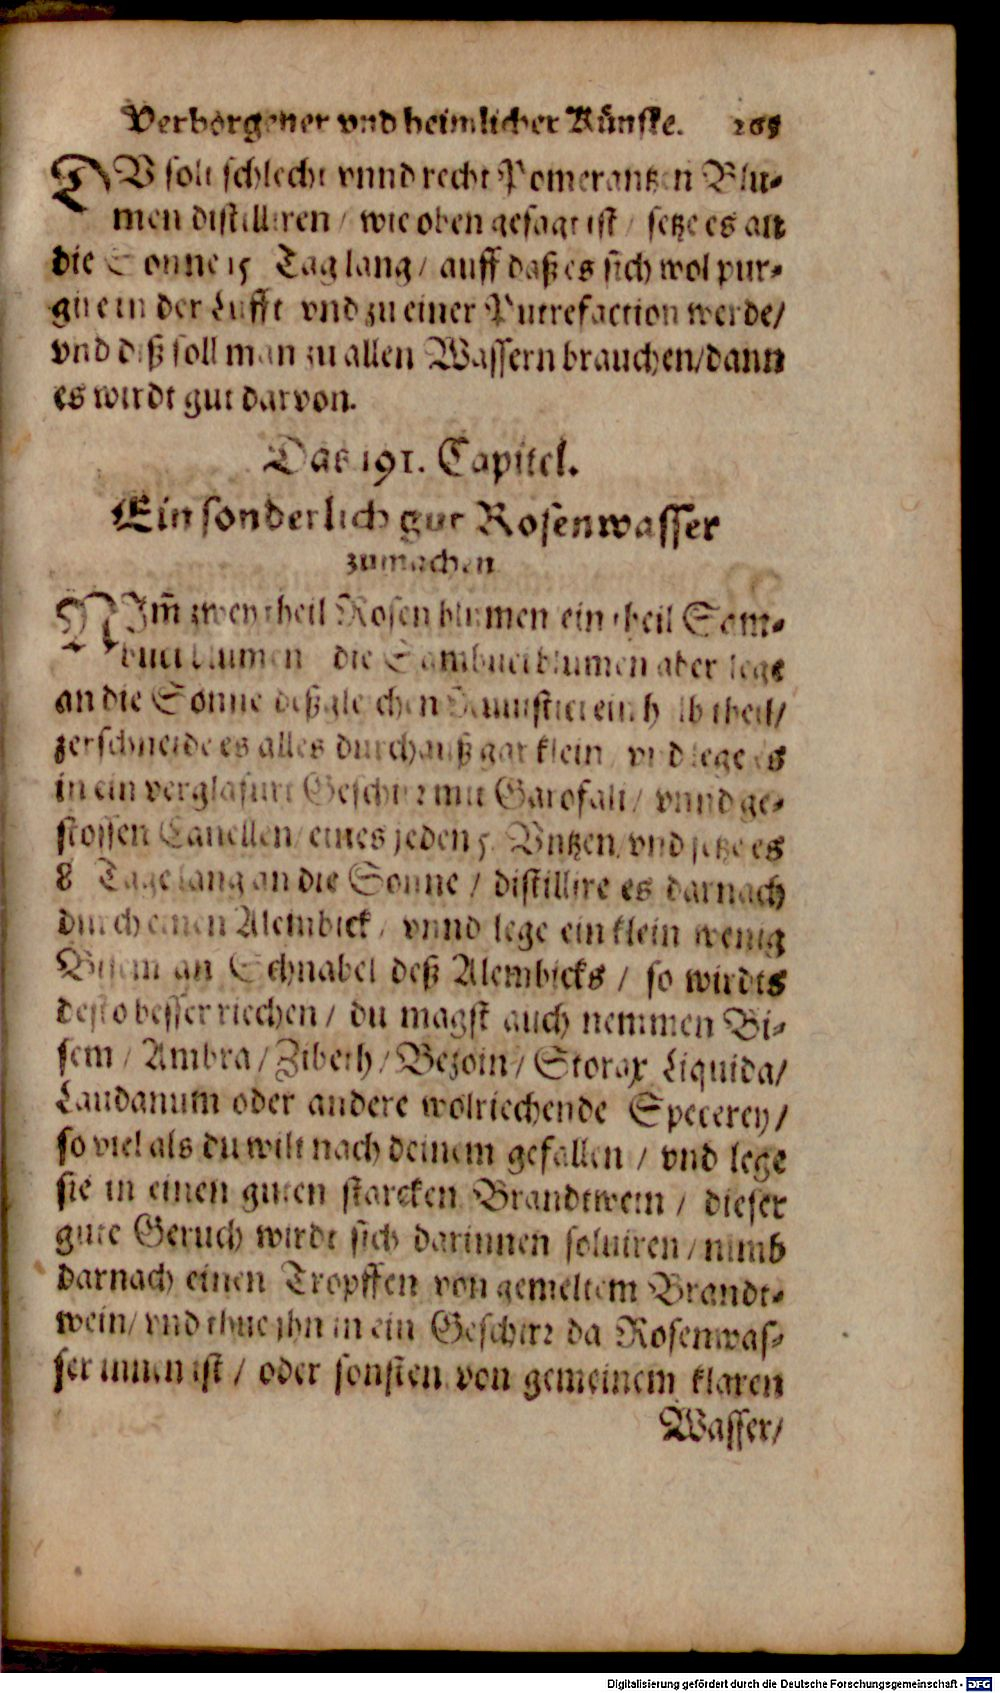 Verborgener vnd heimlicher Künste. 205
DV solt schlecht vnnd recht Pomerantzen Blu-
men distilliren / wie oben gesagt ist / setze es an
die Sonne 15 Tag lang / auff daß es sich wol pur-
giere in der Lufft vnd zu einer Putrefaction werde /
vnd diß soll man zu allen Wassern brauchen / dann
es wirdt gut darvon.
Das 191. Capitel.
Ein sonderlich gut Rosenwasser
zumachen
NIm̃ zwey theil Rosen blumen ein theil Sam-
buci blumen die Sambuci blumen aber lege
an die Sonne deßgleichen ein halb theil /
zerschneide es alles durchauß gar klein / vnd lege es
in ein verglasurt Geschirr mit Garofali / vnnd ge-
stossen Canellen / eines jeden 5. Vntzen / vnd setze es
8 Tage lang an die Sonne / distillire es darnach
durch einen Alembick / vnnd lege ein klein wenig
Bisem an Schnabel deß Alembicks / so wirdts
desto besser riechen / du magst auch nemmen Bi-
sem / Ambra / Zibeth / Bezoin / Storax Liquida /
Laudanum oder andere wolriechende Specerey /
so viel als du wilt nach deinem gefallen / vnd lege
sie in einen guten starcken Brandtwein / dieser
gute Geruch wirdt sich darinnen solviren / nimb
darnach einen Tropffen von gemeltem Brandt-
wein / vnd thue jhn in ein Geschirr da Rosenwas-
ser innen ist / oder sonsten von gemeinem klaren
Wasser /
Digitalisierung gefördert durch die Deutsche Forschungsgemeinschaft - DFG